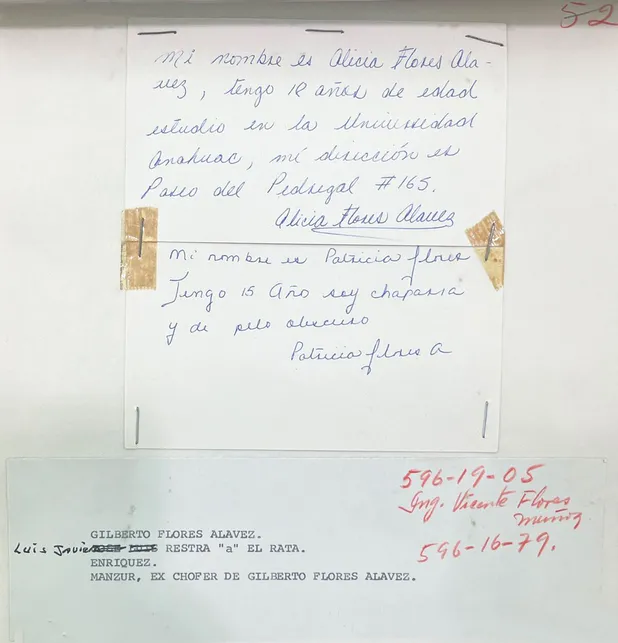 52
Mi nombre es Alicia Flores Ala-
vez, tengo 18 años de edad
estudio en la Universedad
Anahuac, mi dirección es
Paseo del Pedregal #165.
Alicia Flores Alavez
Mi nombre es Patricia flores
Tengo 15 Año soy chaparra
y de pelo obscuro
Patricia flores A
596-19-05
Ing. Vicente Flores
Muñoz
596-16-79.
GILBERTO FLORES ALAVEZ.
Luis Javier RESTRA "a" EL RATA.
ENRIQUEZ.
MANZUR, EX CHOFER DE GILBERTO FLORES ALAVEZ.